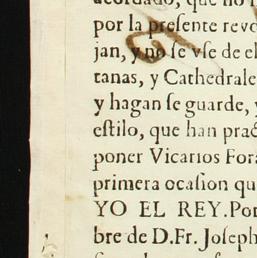 acordado, que no
por la preſente revo
jan, y no ſe vſe de el
tanas, y Cathedrale
y hagan ſe guarde, y
eſtilo, que han prac
poner Vicarios Fora
primera ocaſion qu
YO EL REY. Por
bre de D. Fr. Joſeph